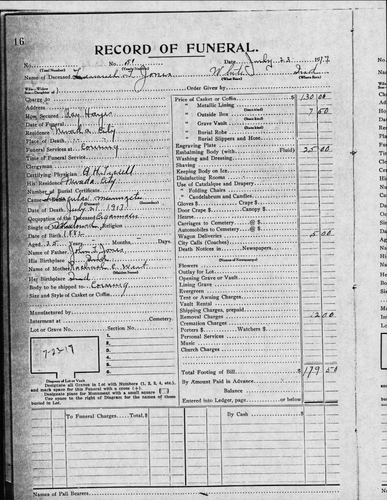 16
RECORD OF FUNERAL.
No. No. Date July 23 1917
(Total Number) (Yearly Number)
Name of Deceased Samuel L Jones White
(What Race)
Order Given by
Charge to
Address
How Secured Ray Hayes
Date of Funeral
Residence Nevada City
Place of Death
Funeral Services at Corning
Time of Funeral Service
Clergyman
Certifying Physician
His Residence Nevada City
Number of Burial Certificate
Cause of Death
Date of Death July 21 1917
Occupation of the Deceased
Single or Married Religion
Date of Birth 1882
Aged 35 Years Months. Days.
Name of Father John Jones
His Birthplace
Name of Mother
Her Birthplace
Body to be shipped to Corning
Size and Style of Casket or Coffin
Manufactured by
Interment at Cemetery
Lot or Grave No. Section No.
7-23-17
1.
2.
3.
4.
5.
6.
Diagram of Lot or Vault
Designate all Graves in Lot with Numbers (1, 2, 3, 4, etc.), and mark space for this Funeral with a cross (+)
Designate place for Monument with a small square
Use space to the right of Diagram for the names of those buried in Lot.
Price of Casket or Coffin $ 130 00
" Metallic Lining
" Outside Box 7 50
" Grave Vault
" Burial Robe
" Burial Slippers and Hose
Engraving Plate
Embalming Body (with Fluid) 25 00
Washing and Dressing
Shaving
Keeping Body on Ice
Disinfecting Rooms
Use of Catafalque and Drapery
" Folding Chairs
" Candelabrum and Candles
Gloves $ Crape $
Door Crape $ Canopy $
Hearse
Carriages to Cemetery @ $
Automobiles to Cemetery @ $
Wagon Deliveries 5 00
City Calls (Coaches)
Death Notices in Newspapers
Flowers
Outlay for Lot
Opening Grave or Vault
Lining Grave
Evergreen
Tent or Awning Charges
Vault Rental
Shipping Charges, prepaid
Removal Charges 12 00
Cremation Charges
Porters $ Watchers $
Personal Services
Music
Church Charges
Total Footing of Bill $ 179 50
By Amount Paid in Advance
Balance
Entered into Ledger, page or below
To Funeral Charges, Total, $ By Cash $
Names of Pall Bearers